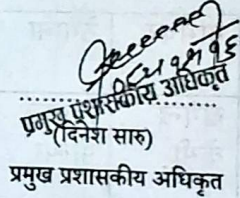 प्रमुख प्रशासकीय अधिकृत
(दिनेश सारु)
प्रमुख प्रशासकीय अधिकृत